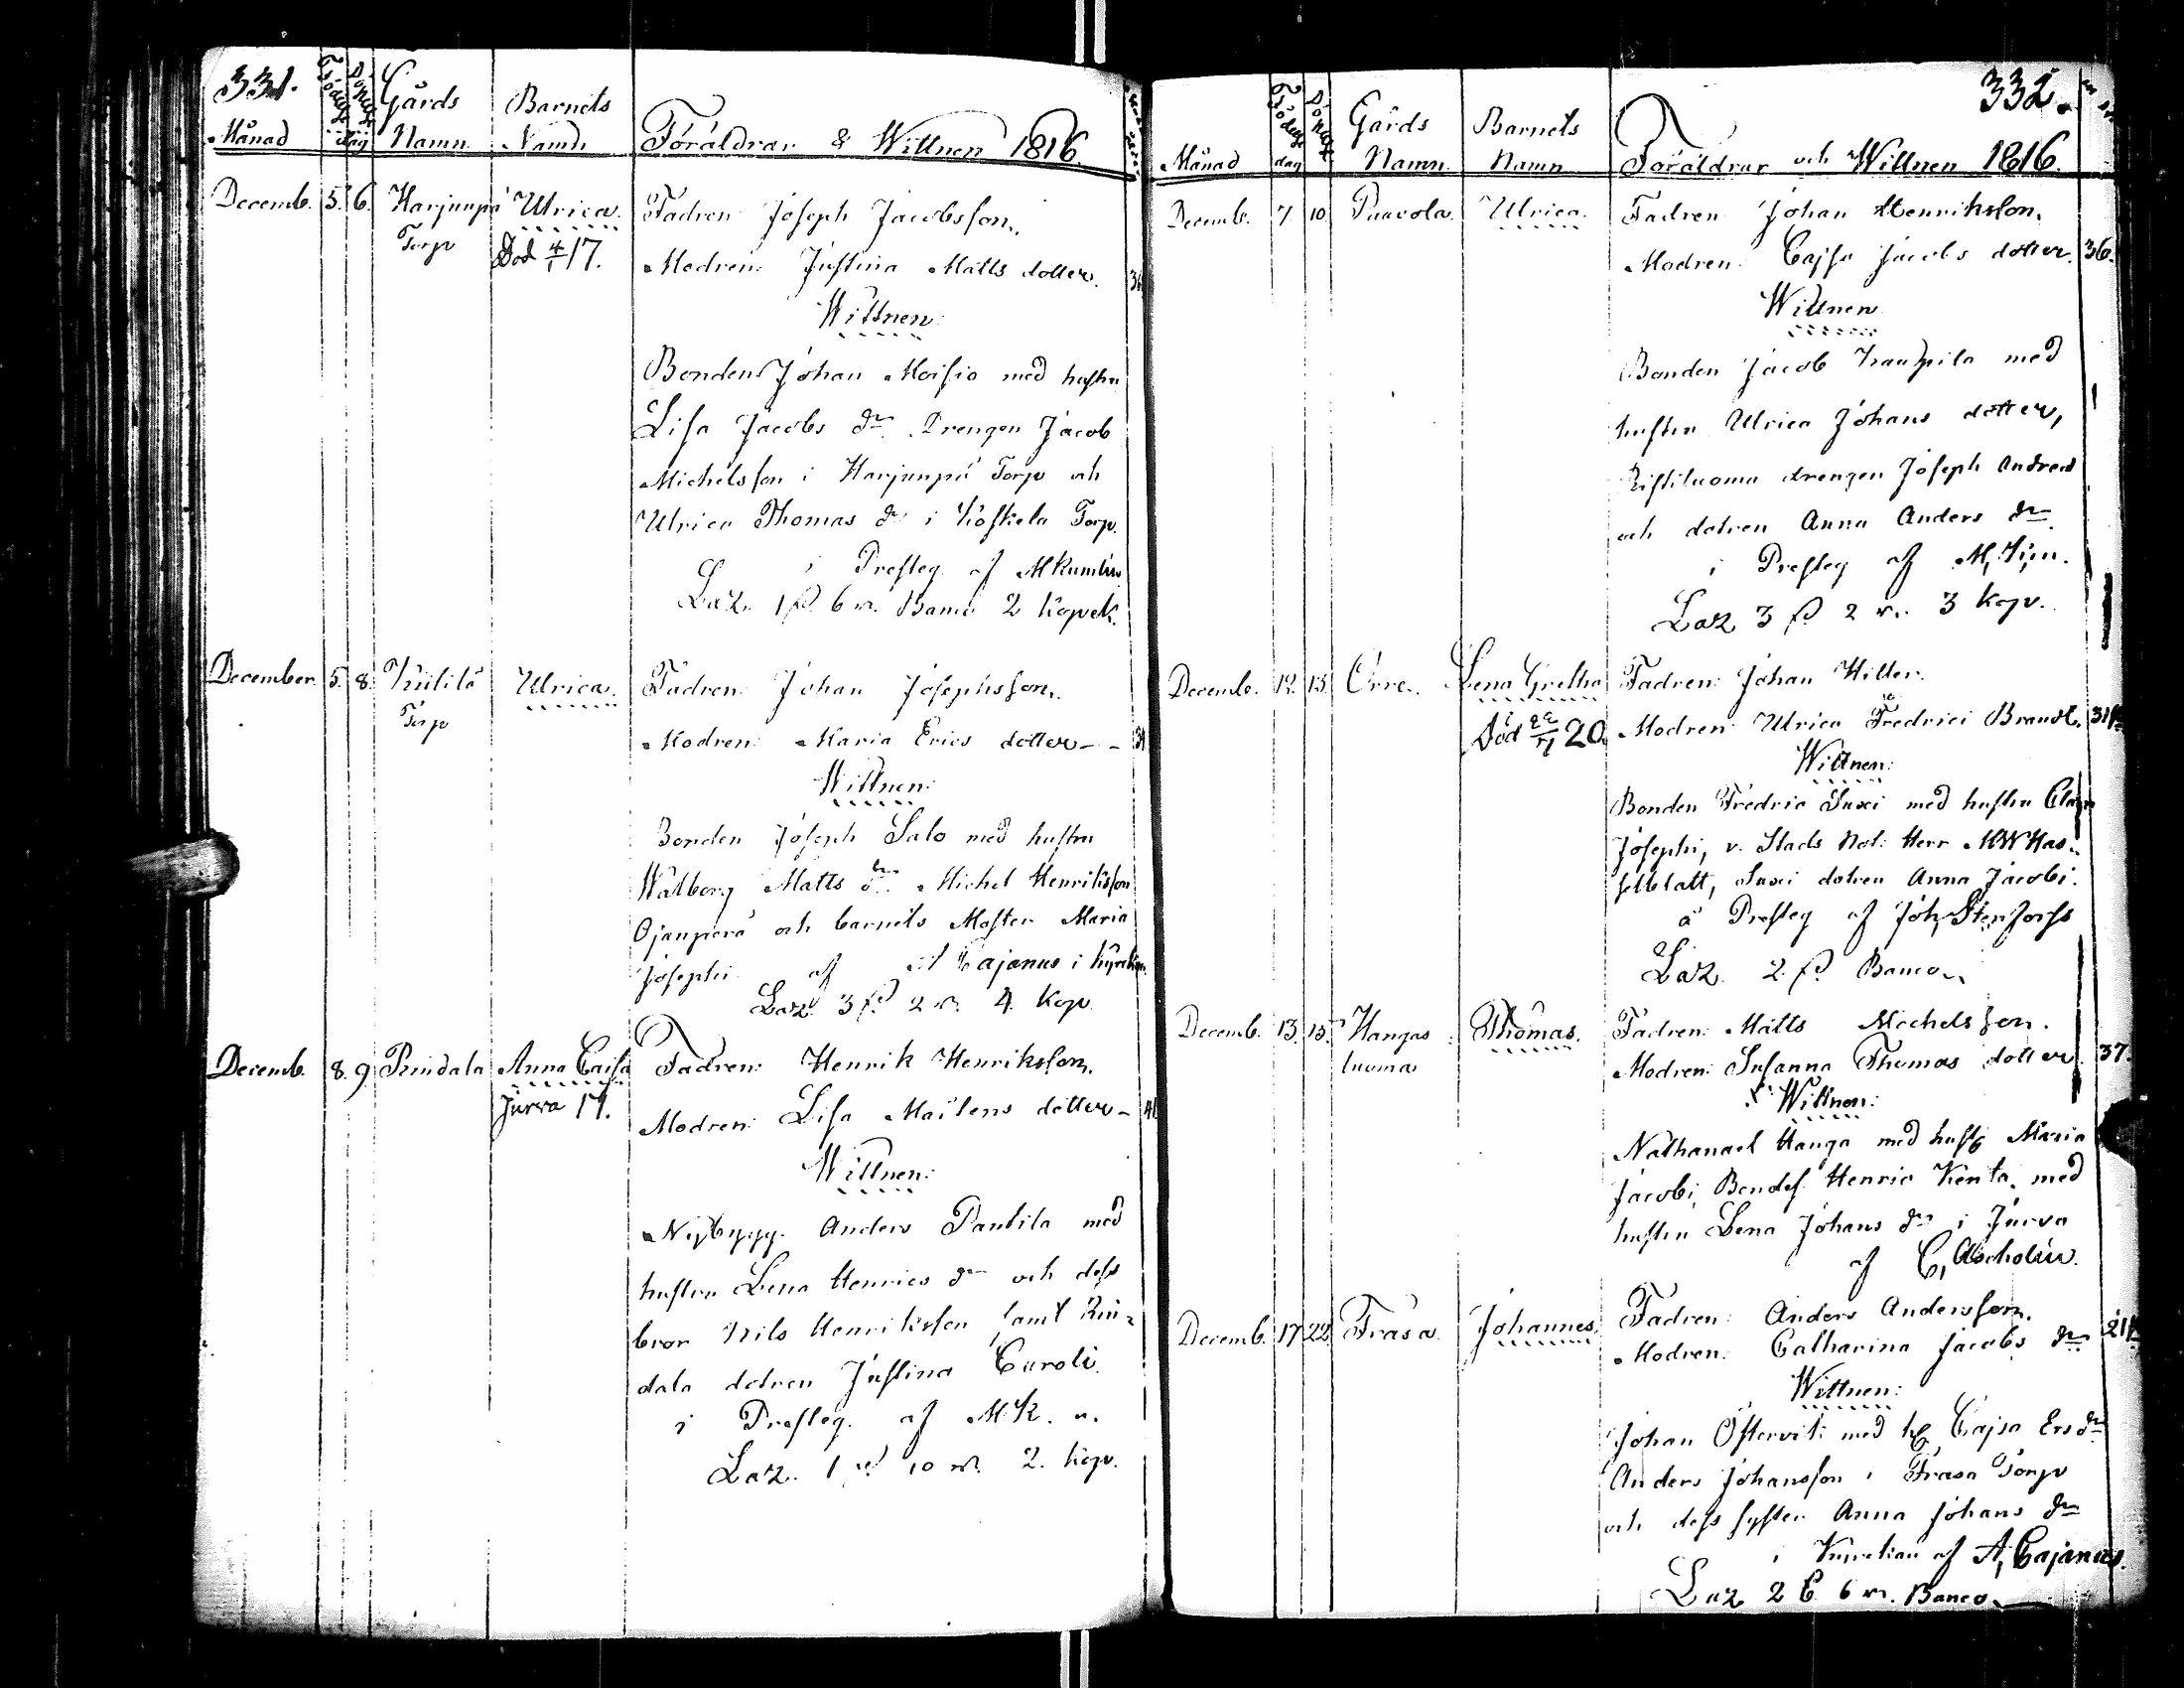 331.
Månad
Födelse dag
Döpelse
Gårds Namn
Barnets Namn
Föräldrar & Wittnen 1816.
Decemb. 5. 6. Harjunpä Ulrica. Fadren Joseph Jacobsson.
Torp Död 4/1 17. Modren: Justina Matts dotter.
Wittnen:
Bonden Johan Moisio med hustru
Lisa Jacobs dr. Drengen Jacob
Michelsson i Harjunpä Torp och
Ulrica Thomas dr i Koskela Torp.
i Presteg. af M Kumlin
Laz. 1 β. 6 r. Banco 2 Kopek.
December. 5. 8. Ulrica. Fadren: Johan Josephsson.
Torp Modren: Maria Erics dotter
Wittnen:
Bonden Joseph Salo med hustru
Walborg Matts dr. Michel Henriksson
Ojanperä och barnets Moster Maria
Josephi af A Cajanus i Kyrckan
Laz. 3 β 2 r. 4. Kop.
Decemb. 8. 9 Rindala Anna Caisa Fadren: Henrik Henriksson.
Jurva 17. Modren: Lisa Mailens dotter 41
Wittnen:
Nybygg. Anders Pantila med
hustru Lena Henrics dr och dess
bror Nils Henriksson samt Rin-
dala dotren Justina Caroli.
i Presteg. af M.K.n.
Laz. 1 β 10 r. 2. kop.
332.
Månad
Födelse dag
Döpelse
Gårds Namn
Barnets Namn
Föräldrar och Wittnen 1816.
Decemb. 7 10. Paavola. Ulrica. Fadren Johan Henriksson.
Modren: Cajsa Jacobs dotter. 36.
Wittnen
Bonden Jacob med
hustru Ulrica Johans dotter,
Ristiluoma drengen Joseph Anders
och dotren Anna Anders dr
i Presteg af
Laz 3 β 2 r. 3 Kop.
Decemb. 12. 13. Orre. Lena Gretha Fadren: Johan Hiller.
Död 20. Modren: Ulrica Fredrici Brandt.
Wittnen:
Bonden Fredric Luxi med hustru
Josephi, v. Stads Not: Herr MW Has-
selblatt, Luxi dotren Anna Jacobi.
å Presteg af Joh, Stenforss
Laz. 2 β Banco.
Decemb. 13. 15. Hangas Thomas. Fadren: Matts Michelsson.
luoma Modren: Susanna Thomas dotter. 37.
Wittnen:
Nathanael Hanga med hust. Maria
Jacobi, Bondes. Henric Kenta med
hustru Lena Johans dr i Jurva
af C, Ascholin.
Decemb. 17 22. Fräsa. Johannes. Fadren: Anders Andersson.
Modren: Catharina Jacobs dr
Wittnen:
Johan Östervik med h. Cajsa Ers dr
Anders Johansson i Fräsa Torp
och dess syster Anna Johans dr
i Kyrckan af A, Cajanus.
Laz 2 β 6 r. Banco